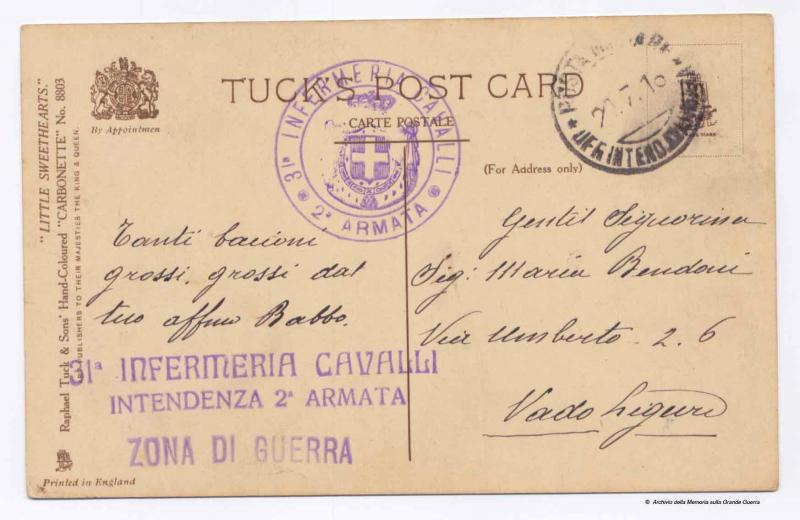 "LITTLE SWEETHEARTS."
Raphael Tuck & Sons' Hand-Coloured "CARBONETTE" No. 8803
PUBLISHERS TO THEIR MAJESTIES THE KING & QUEEN.
By Appointmen
TUCK'S POST CARD
CARTE POSTALE
(For Address only)
31ª INFERMERIA CAVALLI
2ª ARMATA
INTEND.
Tanti bacioni
grossi, grossi dal
tuo affmo Babbo.
31ª INFERMERIA CAVALLI
INTENDENZA 2ª ARMATA
ZONA DI GUERRA
Gentil Signorina
Sig: Maria Bendoni
Via Umberto 2. 6
Vado Ligure
Printed in England
© Archivio della Memoria sulla Grande Guerra